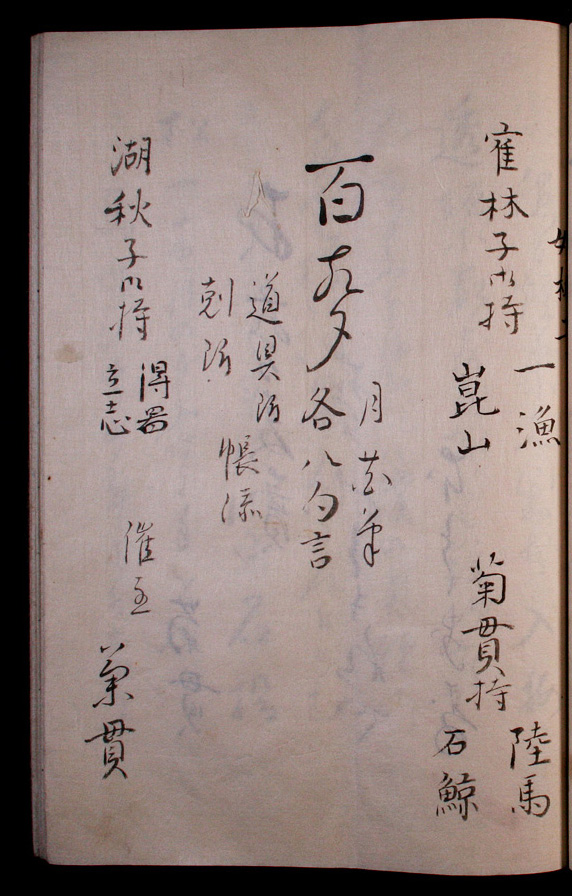 寉林子内持
一漁
崑山
菊貫持
陸馬
石鯨
月
百
各八句言
道具所
剋所
帳添
湖秋子内持
得器
立志
催主
菊貫